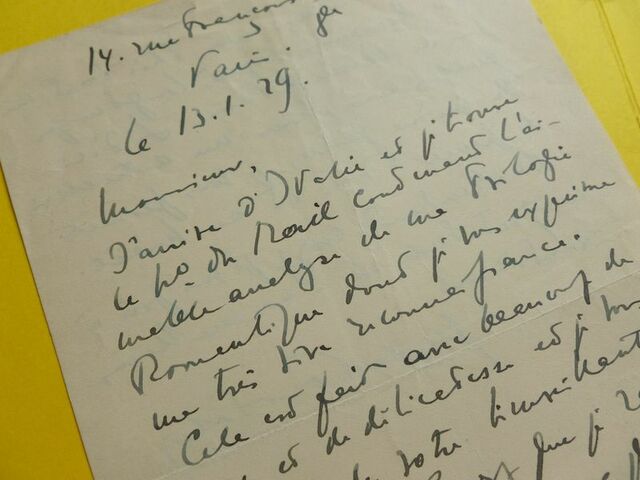 14. rue François
Paris.
le 13.1.29.
Monsieur,
J'arrive d'Italie et je trouve
le no. du Mail contenant l'ai-
mable analyse de ma Trilogie
Romantique dont je vous exprime
ma très vive reconnaissance.
Cela est fait avec beaucoup de
et de délicatesse et je
de votre
que je